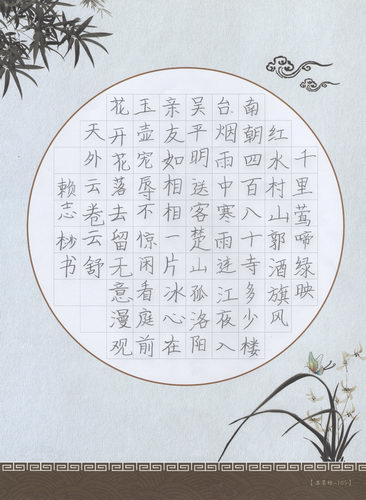 千里莺啼绿映
红水村山郭酒旗风
南朝四百八十寺多少楼
台烟雨中寒雨连江夜入
吴平明送客楚山孤洛阳
亲友如相相一片冰心在
玉壶宠辱不惊闲看庭前
花开花落去留无意漫观
天外云卷云舒
赖志书
105